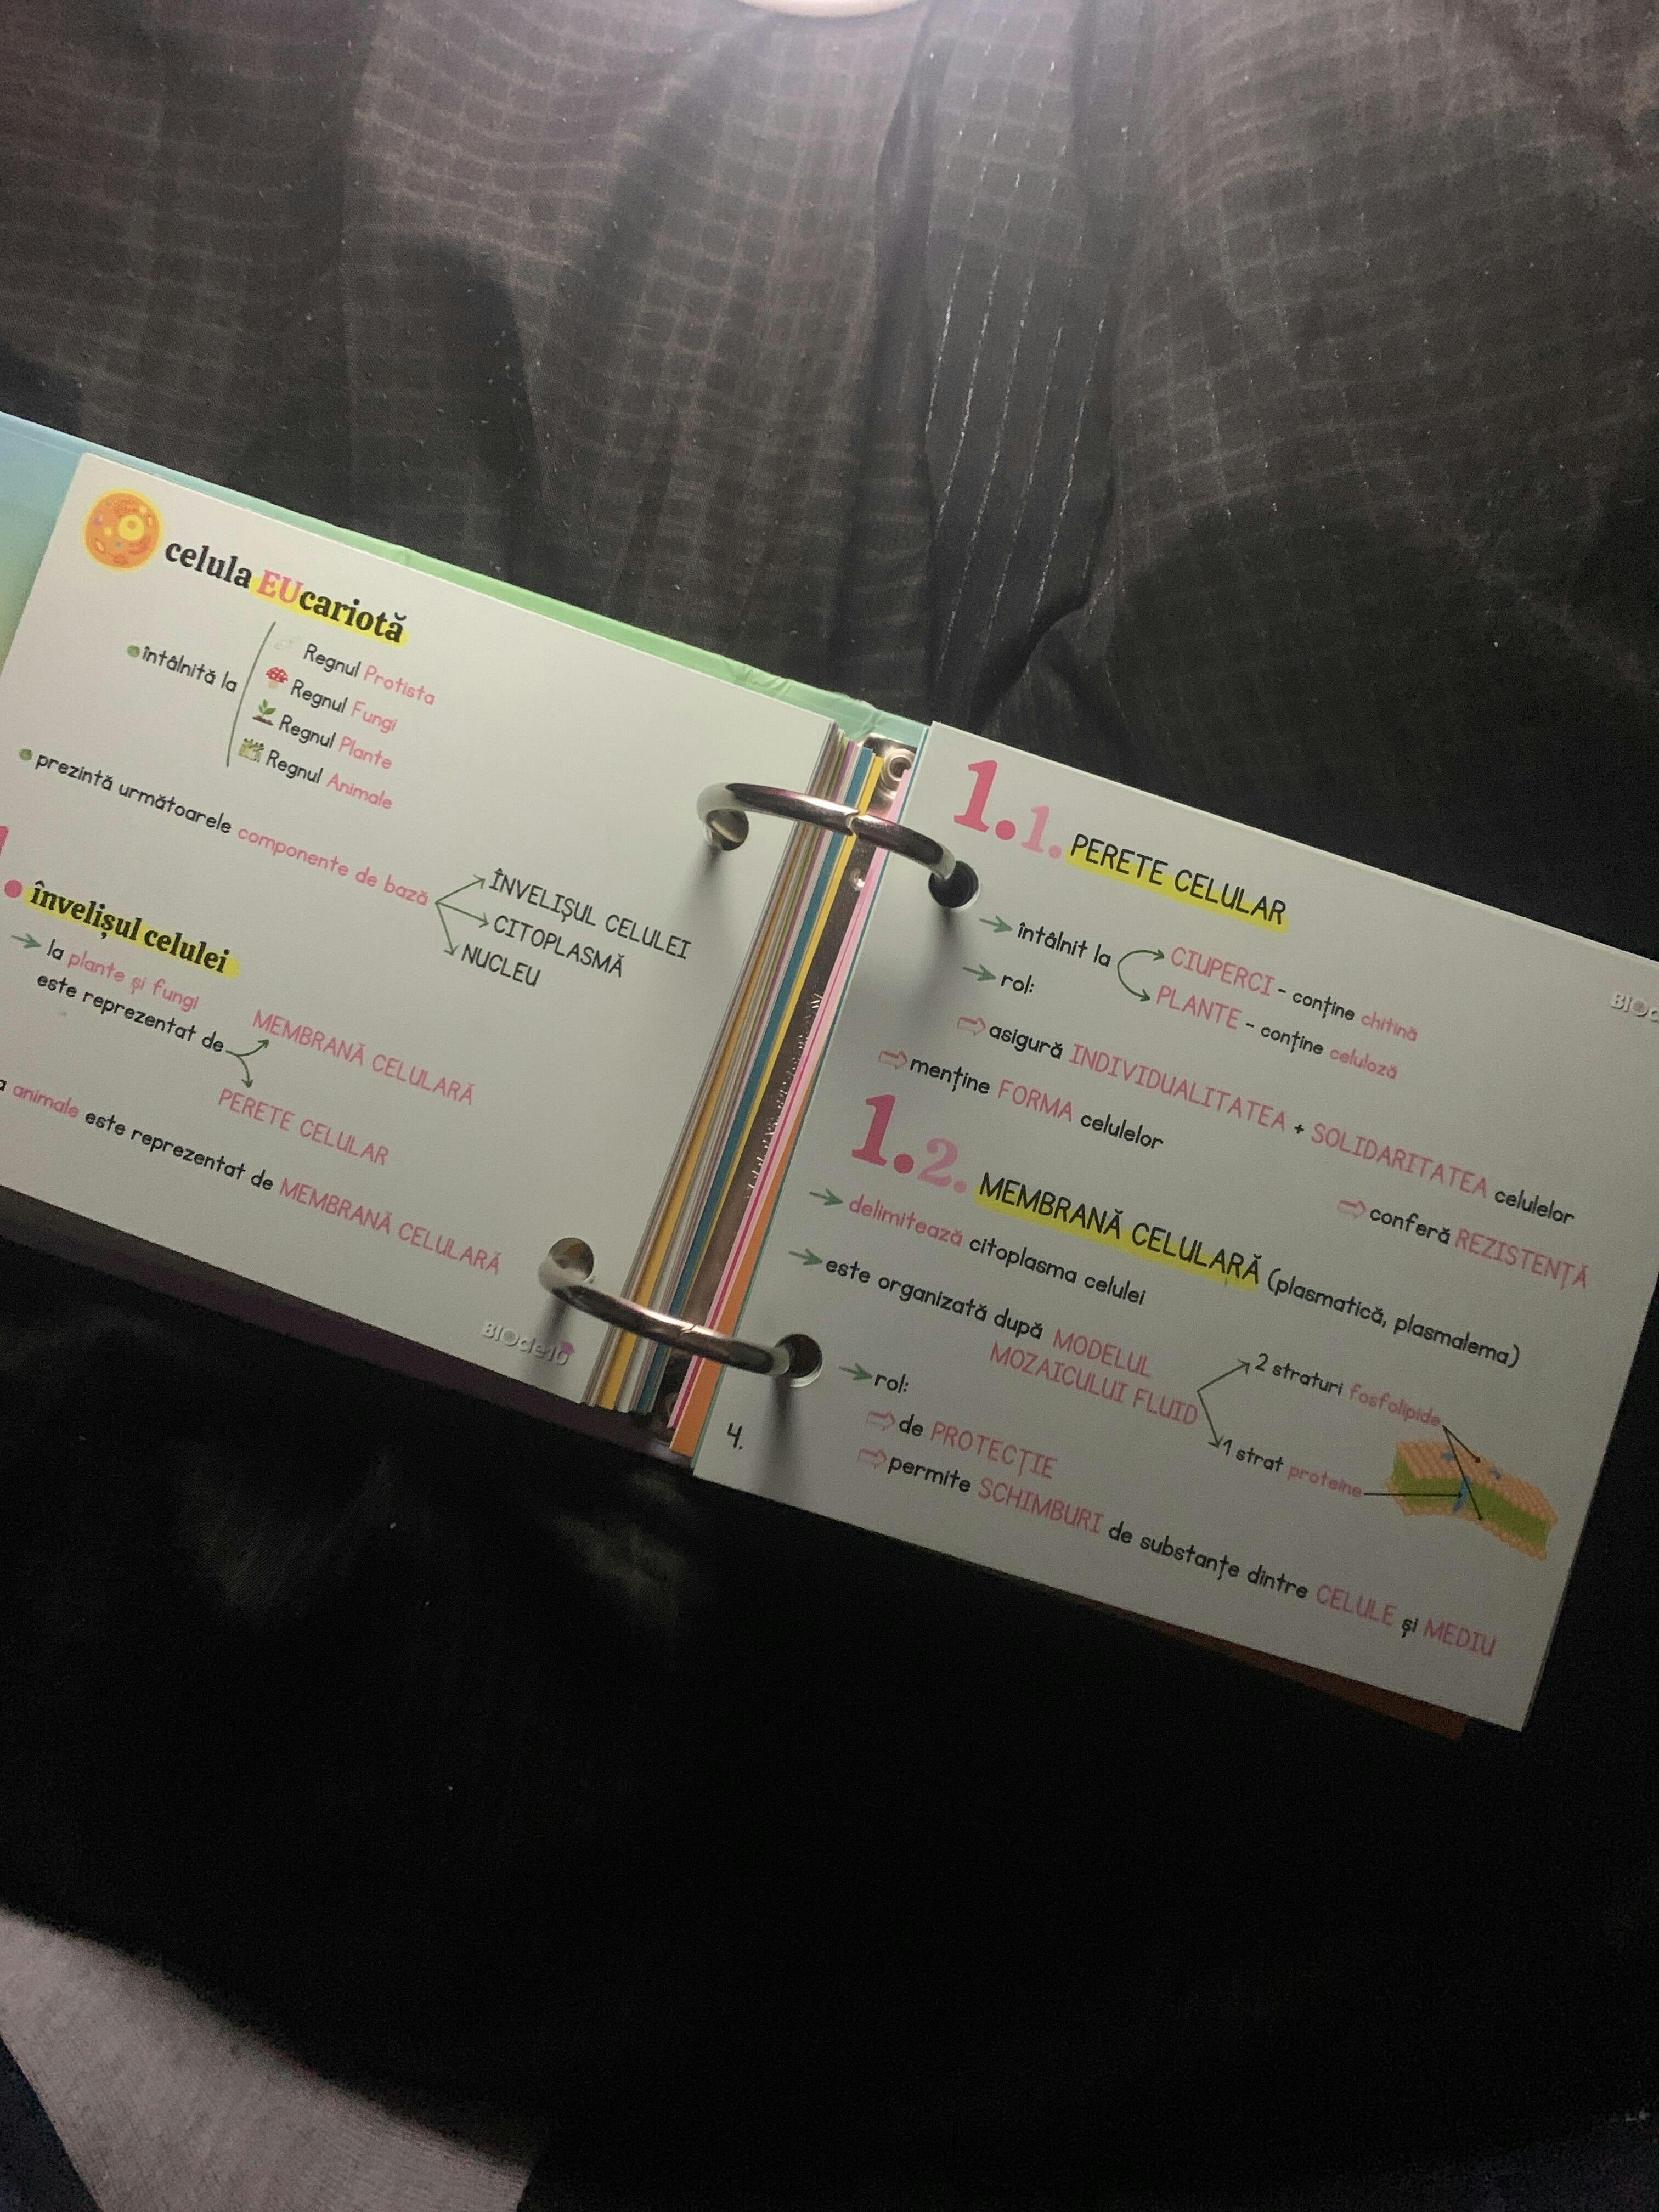 celula EUcariotă
întâlnită la
Regnul Protista
Regnul Fungi
Regnul Plante
Regnul Animale
prezintă următoarele componente de bază
ÎNVELIȘUL CELULEI
CITOPLASMĂ
NUCLEU
învelișul celulei
la plante și fungi
este reprezentat de
MEMBRANĂ CELULARĂ
PERETE CELULAR
animale este reprezentat de MEMBRANĂ CELULARĂ
BIOde10
1.1. PERETE CELULAR
întâlnit la
CIUPERCI - conține chitină
PLANTE - conține celuloză
rol:
asigură INDIVIDUALITATEA + SOLIDARITATEA celulelor
menține FORMA celulelor
conferă REZISTENȚĂ
1.2. MEMBRANĂ CELULARĂ (plasmatică, plasmalema)
delimitează citoplasma celulei
este organizată după MODELUL
MOZAICULUI FLUID
2 straturi fosfolipide
1 strat proteine
rol:
de PROTECȚIE
permite SCHIMBURI de substanțe dintre CELULE și MEDIU
4.